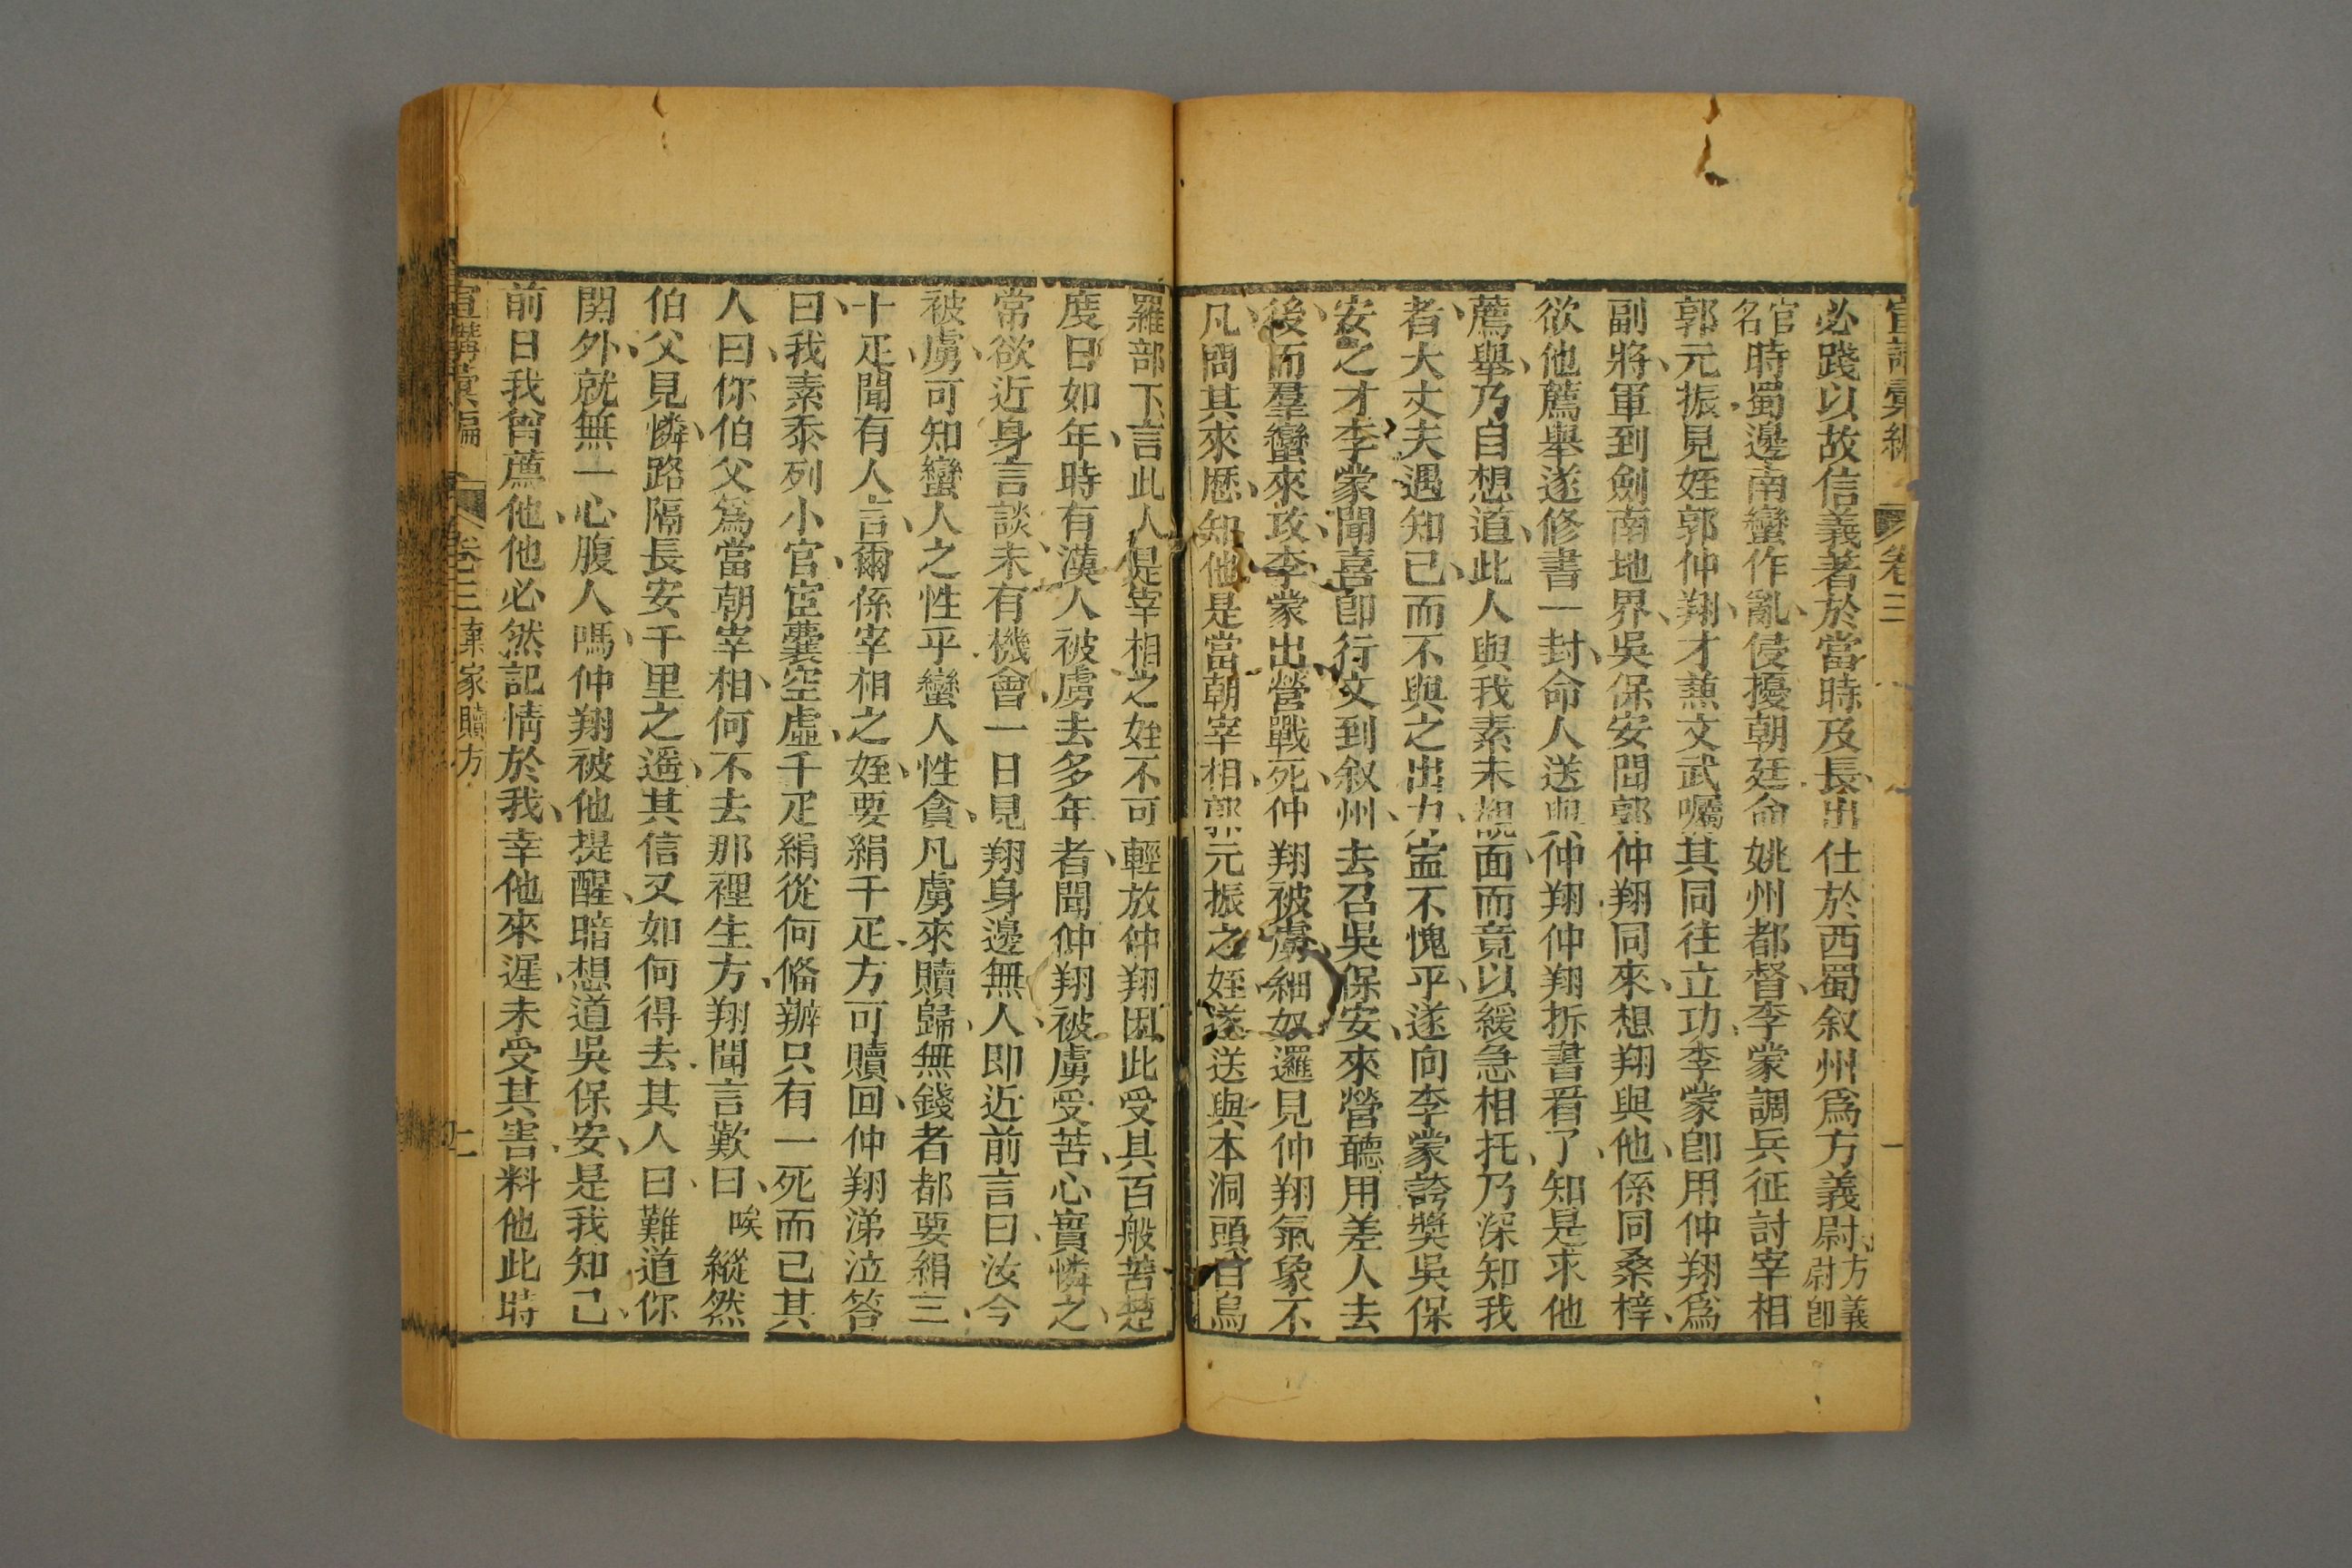 宣講彙編 卷三 一
必踐以故信義著於當時及長出仕於西蜀叙州爲方義尉方義尉卽
官名時蜀邊南蠻作亂侵擾朝廷命姚州都督李蒙調兵征討宰相
郭元振見姪郭仲翔才兼文武囑其同往立功李蒙卽用仲翔爲
副將軍到劍南地界吳保安聞郭仲翔同來想翔與他係同桑梓
欲他薦舉遂修書一封命人送與仲翔仲翔拆書看了知是求他
薦舉乃自想道此人與我素未覩面而竟以緩急相托乃深知我
者大丈夫遇知己而不與之出力寧不愧乎遂向李蒙誇奬吳保
安之才李蒙聞喜卽行文到叙州去召吳保安來營聽用差人去
後而羣蠻來攻李蒙出營戰死仲翔被虜細奴邏見仲翔氣象不
凡問其來歷知他是當朝宰相郭元振之姪遂送與本洞頭目烏
羅部下言此人是宰相之姪不可輕放仲翔因此受其百般苦楚
度日如年時有漢人被虜去多年者聞仲翔被虜受苦心實憐之
常欲近身言談未有機會一日見翔身邊無人即近前言曰汝今
被虜可知蠻人之性乎蠻人性貪凡虜來贖歸無錢者都要絹三
十疋聞有人言爾係宰相之姪要絹千疋方可贖回仲翔涕泣答
曰我素忝列小官宦囊空虛千疋絹從何偹辦只有一死而已其
人曰你伯父爲當朝宰相何不去那裡生方翔聞言歎曰唉縱然
伯父見憐路隔長安千里之遥其信又如何得去其人曰難道你
関外就無一心腹人嗎仲翔被他提醒暗想道吳保安是我知己
前日我曾薦他他必然記情於我幸他來遲未受其害料他此時
宣講彙編 卷三 棄家贖友 二